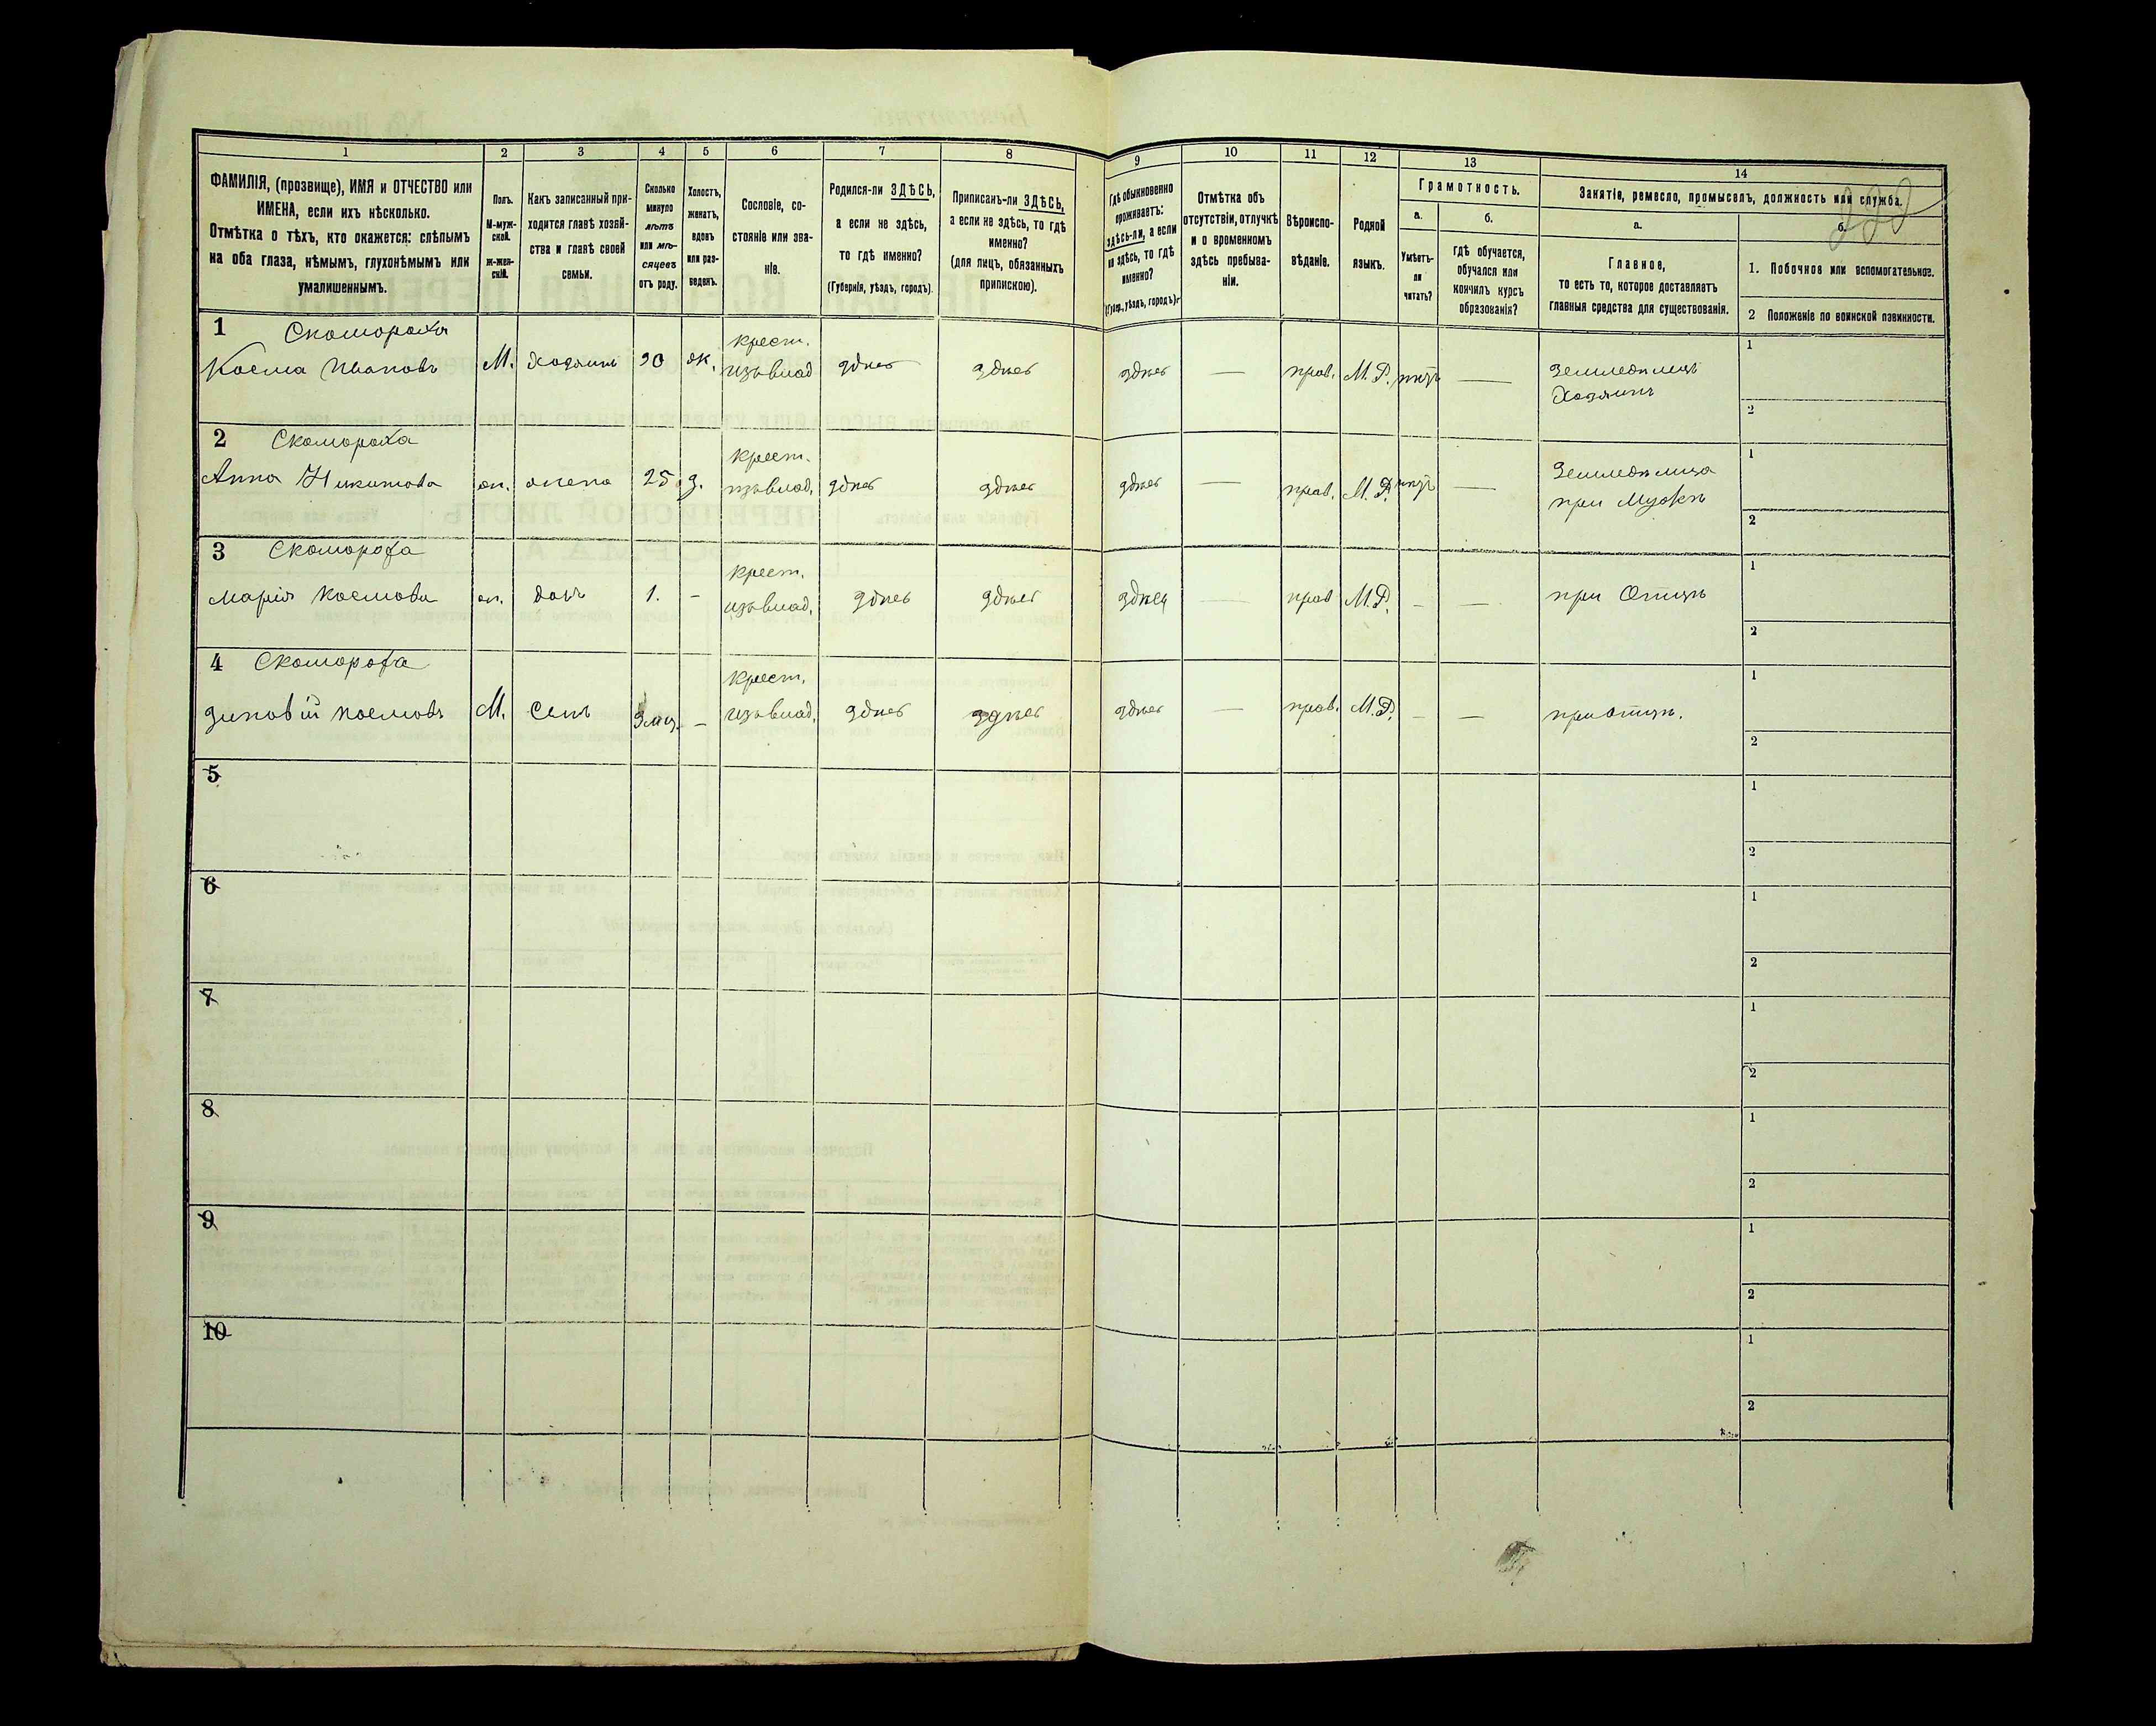 1
2
3
4
5
6
7
8
9
10
11
12
13
14
ФАМИЛІЯ, (прозвище), ИМЯ и ОТЧЕСТВО или
ИМЕНА, если ихъ нѣсколько.
Отмѣтка о тѣхъ, кто окажется: слѣпымъ
на оба глаза, нѣмымъ, глухонѣмымъ или
умалишеннымъ.
Полъ.
М-муж-
ской.
ж-жен-
скій.
Какъ записанный при-
ходится главѣ хозяй-
ства и главѣ своей
семьи.
Сколько
минуло
лѣтъ
или мѣ-
сяцевъ
отъ роду.
Холостъ,
женатъ,
вдовъ
или раз-
веденъ.
Сословіе, со-
стояніе или зва-
ніе.
Родился-ли ЗДѢСЬ,
а если не здѣсь,
то гдѣ именно?
(Губернія, уѣздъ, городъ).
Приписанъ-ли ЗДѢСЬ,
а если не здѣсь, то гдѣ
именно?
(для лицъ, обязанныхъ
припискою).
Гдѣ обыкновенно
проживаетъ:
здѣсь-ли, а если
не здѣсь, то гдѣ
именно?
(Губер., уѣздъ, городъ).
Отмѣтка объ
отсутствіи, отлучкѣ
и о временномъ
здѣсь пребыва-
ніи.
Вѣроиспо-
вѣданіе.
Родной
языкъ.
Грамотность.
а.
Умѣетъ-
ли
читать?
б.
гдѣ обучается,
обучался или
кончилъ курсъ
образованія?
Занятіе, ремесло, промыселъ, должность или служба.
а.
Главное,
то есть то, которое доставляетъ
главныя средства для существованія.
б.
1. Побочное или вспомогательное.
2 Положеніе по воинской повинности.
1 Скомороха
Косма Ивановъ М. Хозяинъ 30 ж. крест. изъ влад здѣсь здѣсь здѣсь — прав. М.Р. нѣтъ — Земледѣлецъ
Хозяинъ
1
2
2 Скомороха
Анна Никитова ж. жена 25. з. крест. изъ влад. здѣсь здѣсь здѣсь — прав. М.Р. нѣтъ — Земледѣлица
при Мужѣ
1
2
3 Скомороха
Марія Космова ж. дочь 1. - крест. изъ влад. здѣсь здѣсь здѣсь — прав М.Р. - — при Отцѣ
1
2
4 Скомороха
Зиновій Космовъ М. Сынъ 3 мѣ. - крест. изъ влад. здѣсь здѣсь здѣсь — прав. М.Р. - — при отцѣ.
1
2
5
1
2
6
1
2
7
1
2
8
1
2
9
1
2
10
1
2